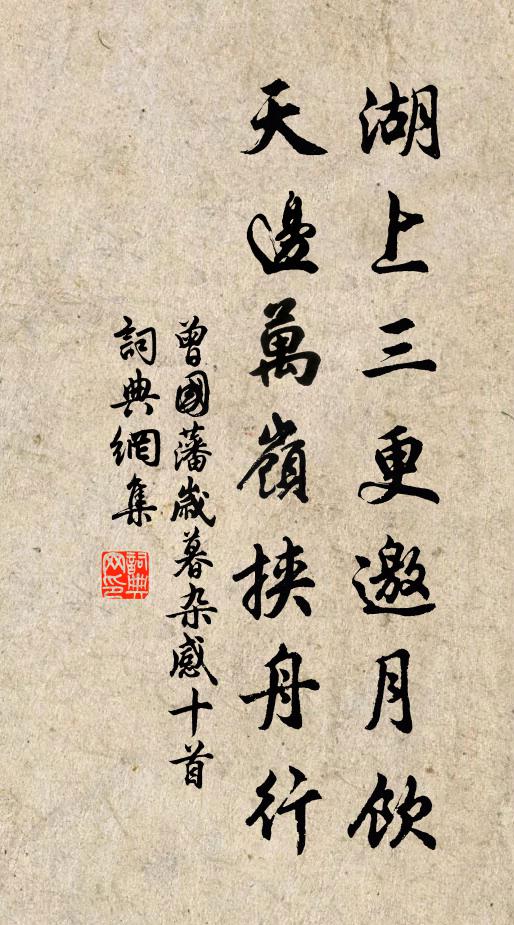 湖上三更邀月飲
天邊萬嶺挾舟行
曾國藩歲暮杂感十首
詞典網集
詞典網印